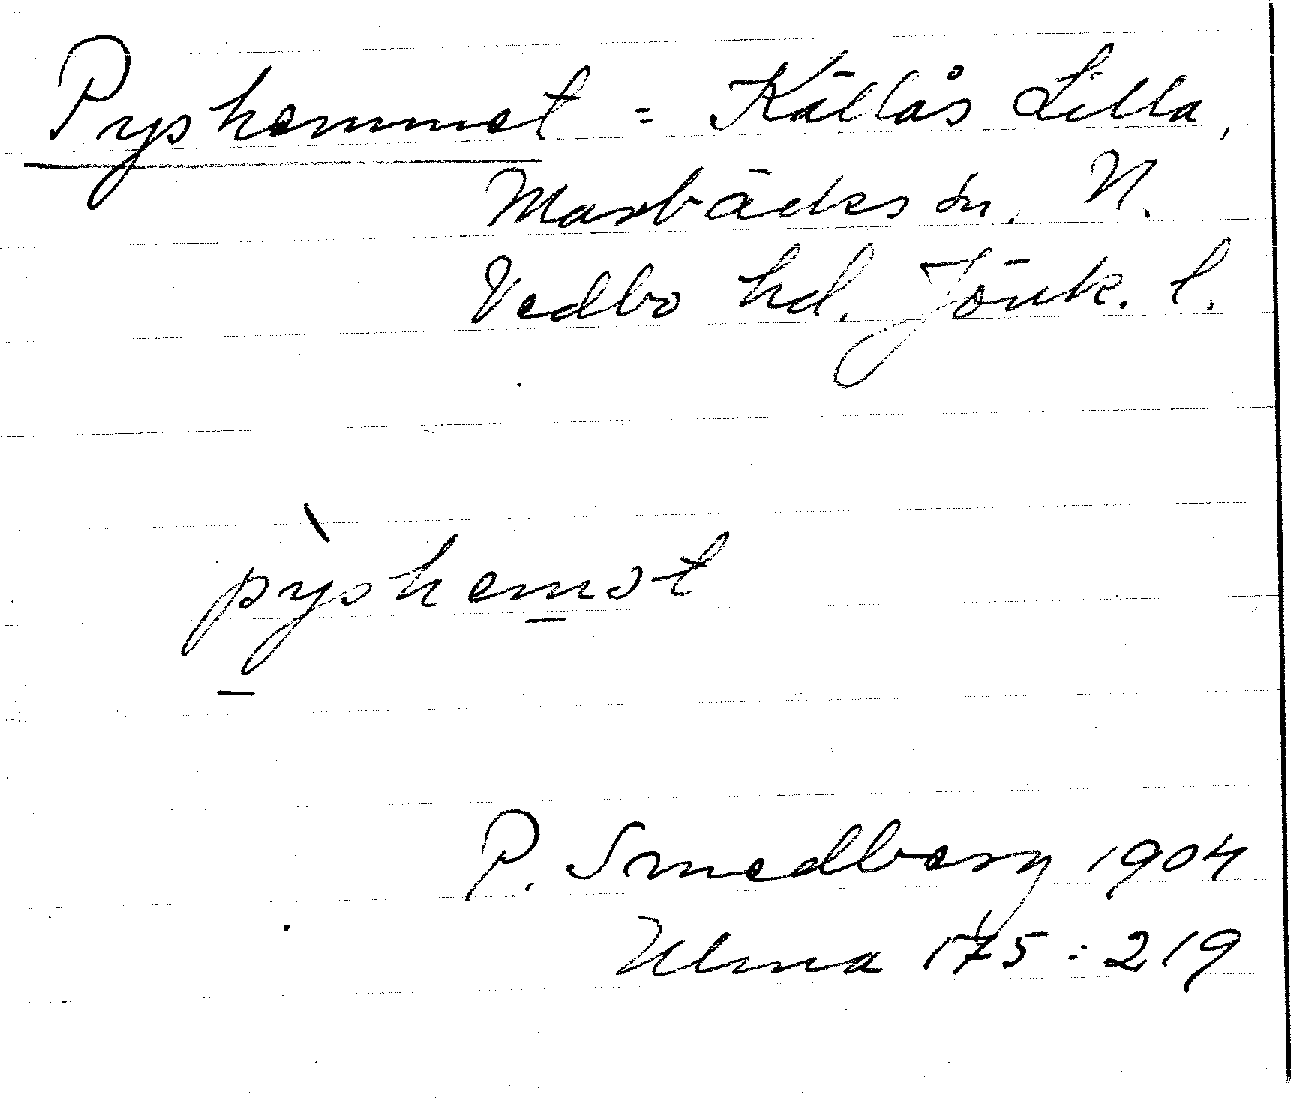 Pyshemmet = Källås Lilla,
Marbäcks sn, N.
Vedbo hd. Jönk. l.
pyshemət
P. Smedberg 1904
Ulma 175:219